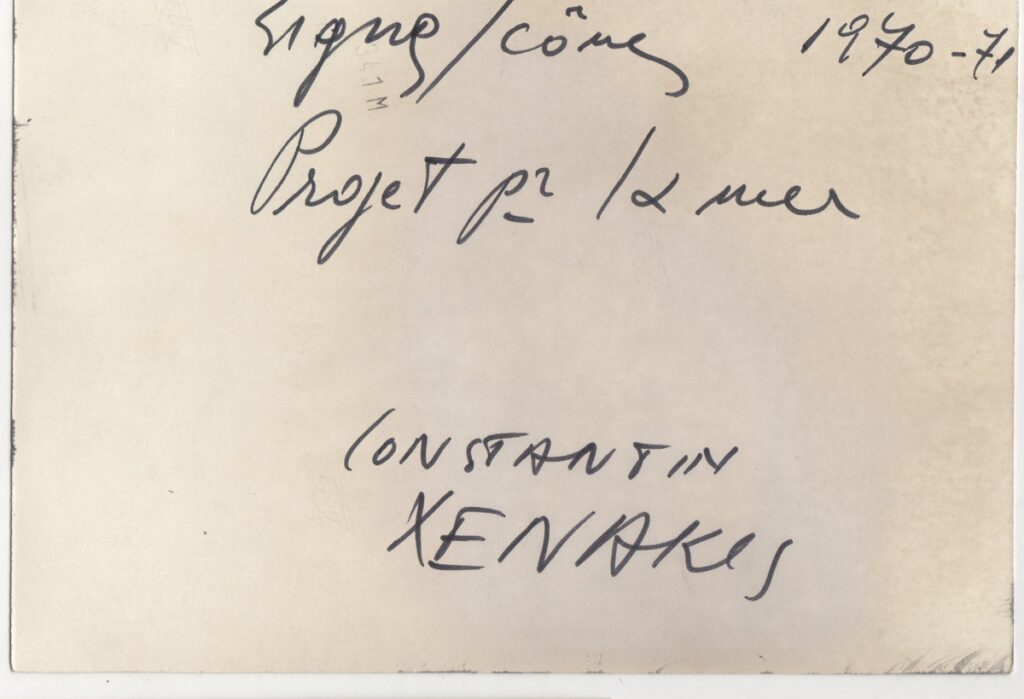 Signe/cône 1970-71
Projet pr la mer
CONSTANTIN
XENAKIS